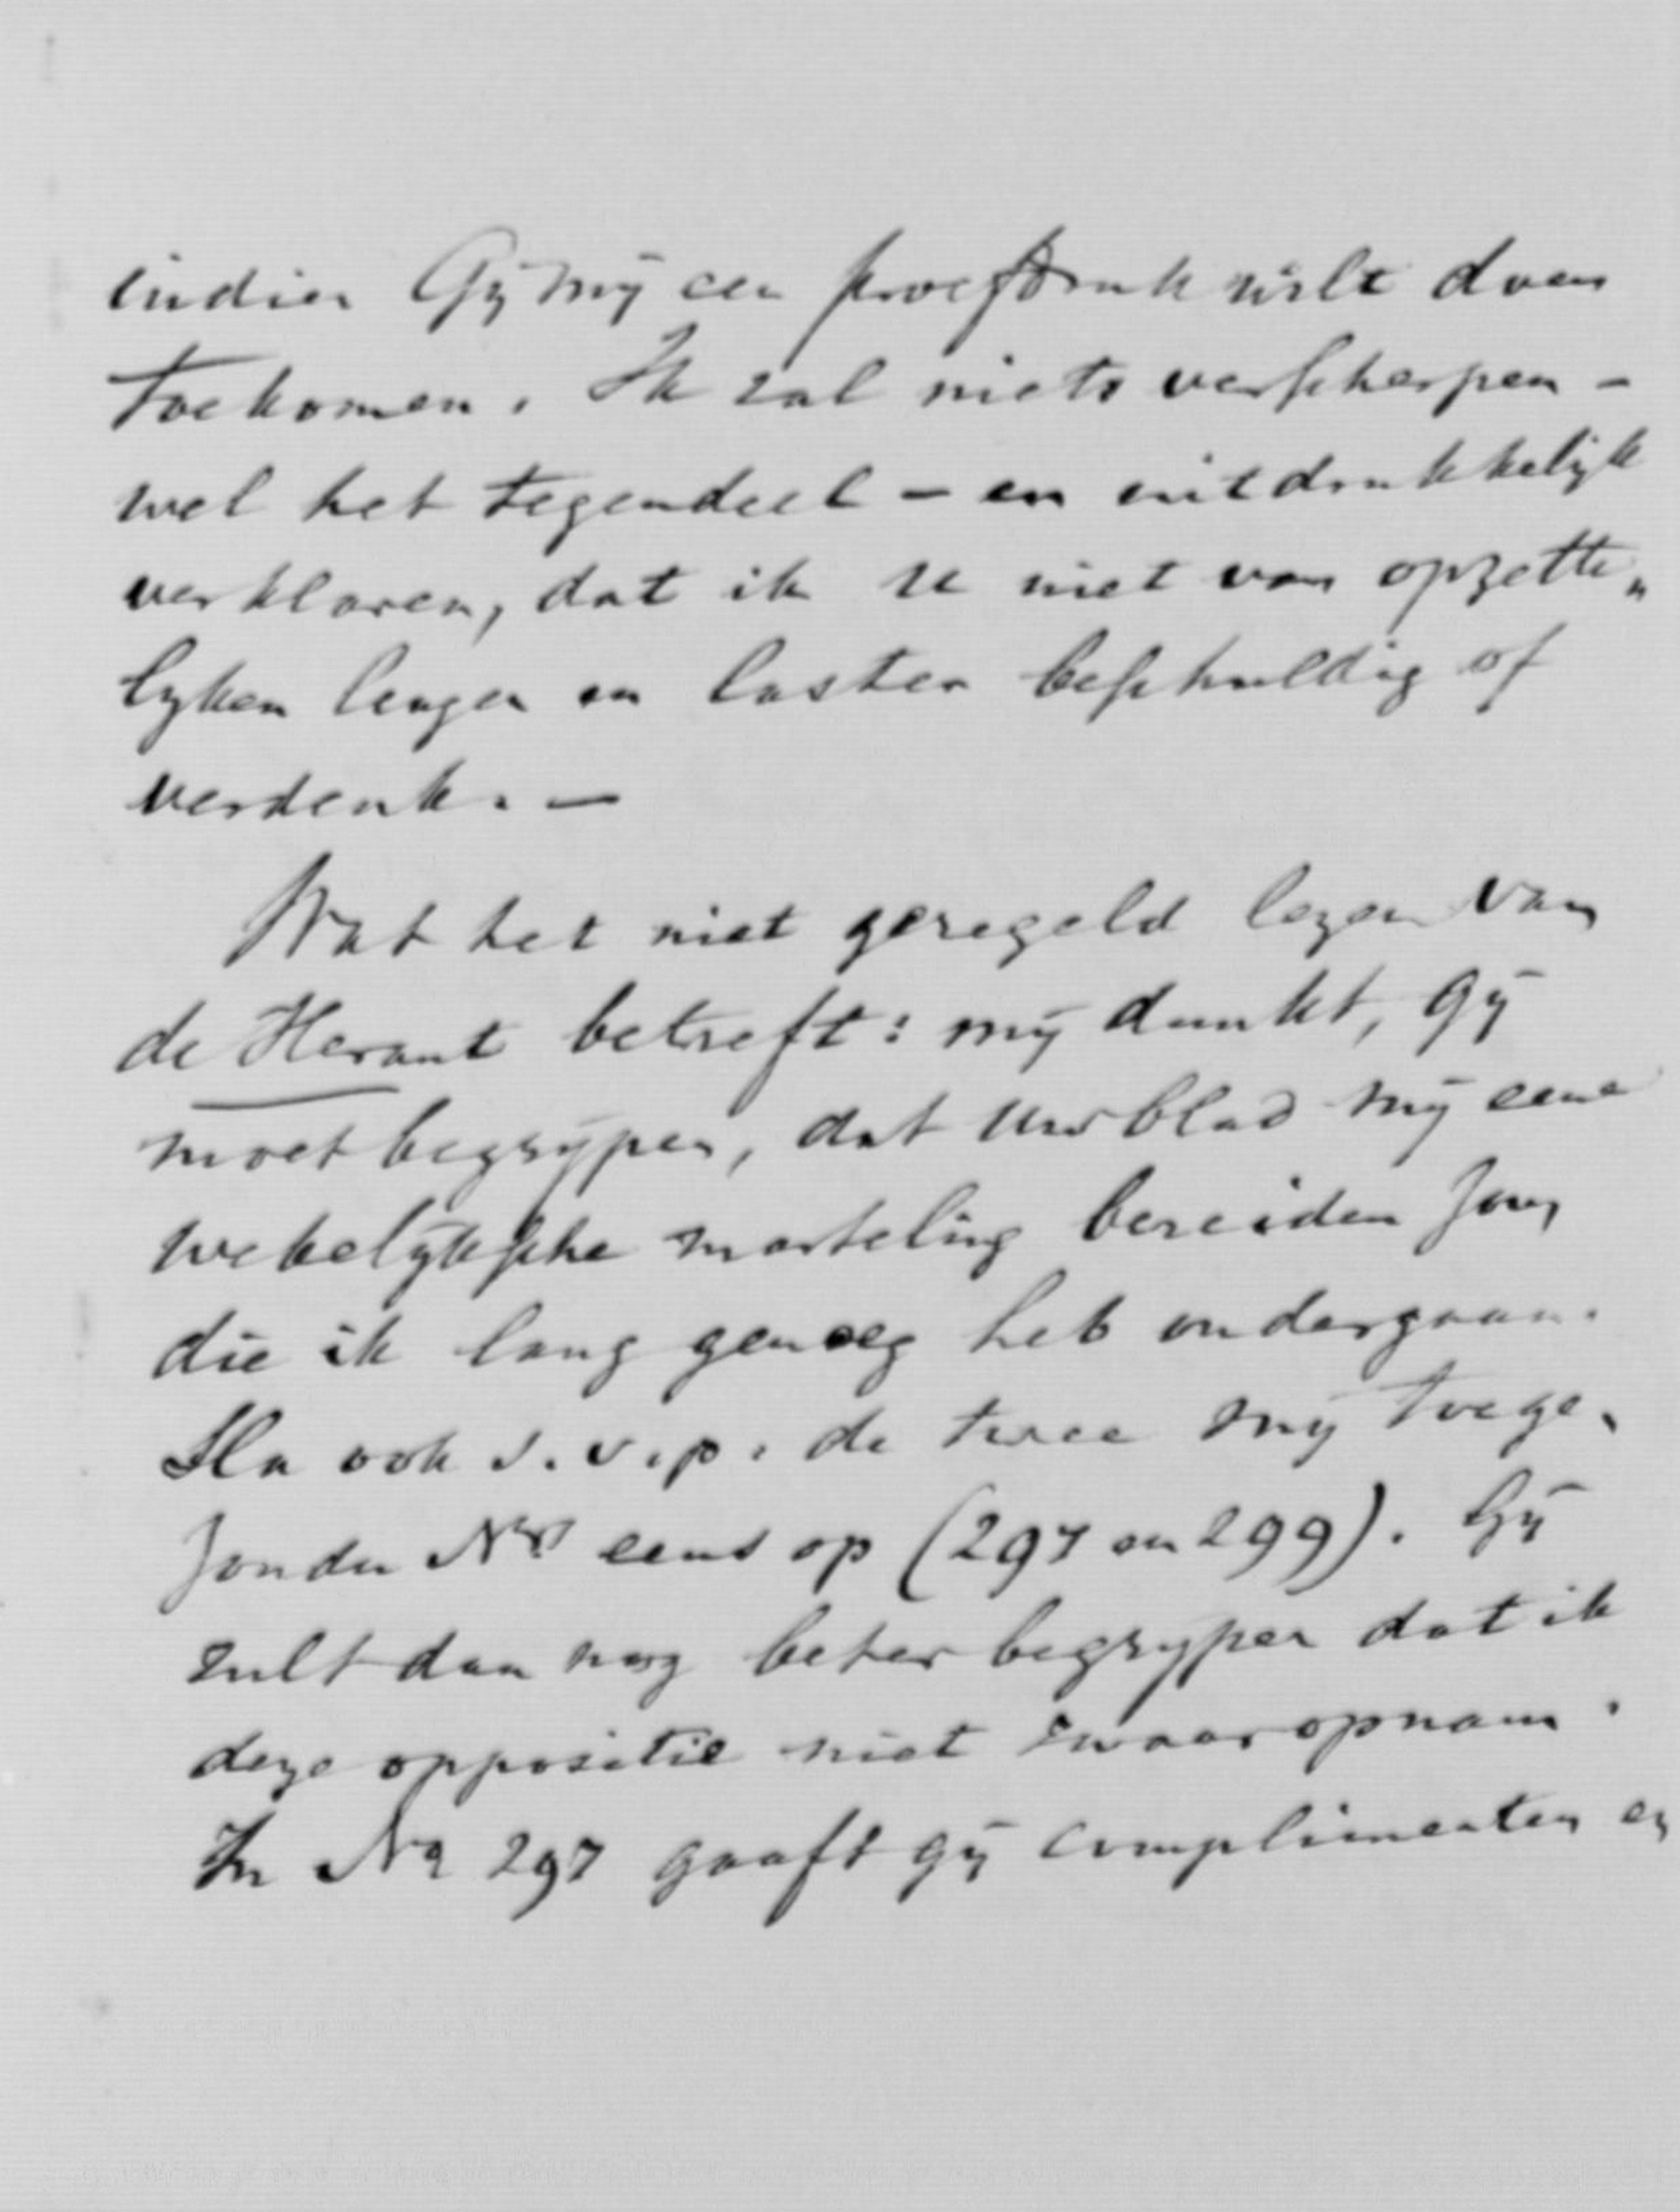 indien Gij mij een proefdruk wilt doen
toekomen. Ik zal niets verscherpen -
wel het tegendeel - en uitdrukkelijk
verklaren, dat ik U niet van opzette„
lyken leugen en laster beschuldig of
verdenk. -
Wat het niet geregeld lezen van
de Heraut betreft: mij dunkt, gij
moet begrijpen, dat Uw blad mij eene
wekelijksche marteling bereiden zou,
die ik lang genoeg heb ondergaan.
Sla ook s.v.p. de twee mij toege„
zonden Nrs eens op (297 en 299). Gij
zult dan nog beter begrypen dat ik
deze oppositie niet zwaar opnam.
In No 297 gaaft gij complimenten en